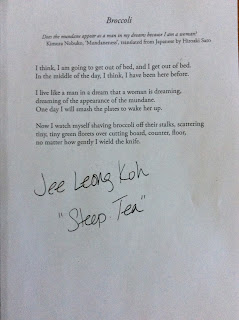 Broccoli
Does the mundane appear as a man in my dreams because I am a woman?
Kimura Nobuko, 'Mundaneness', translated from Japanese by Hiroaki Sato
I think, I am going to get out of bed, and I get out of bed.
In the middle of the day, I think, I have been here before.
I live like a man in a dream that a woman is dreaming,
dreaming of the appearance of the mundane.
One day I will smash the plates to wake her up.
Now I watch myself shaving broccoli off their stalks, scattering
tiny, tiny green florets over cutting board, counter, floor,
no matter how gently I wield the knife.
Jee Leong Koh
"Steep Tea"